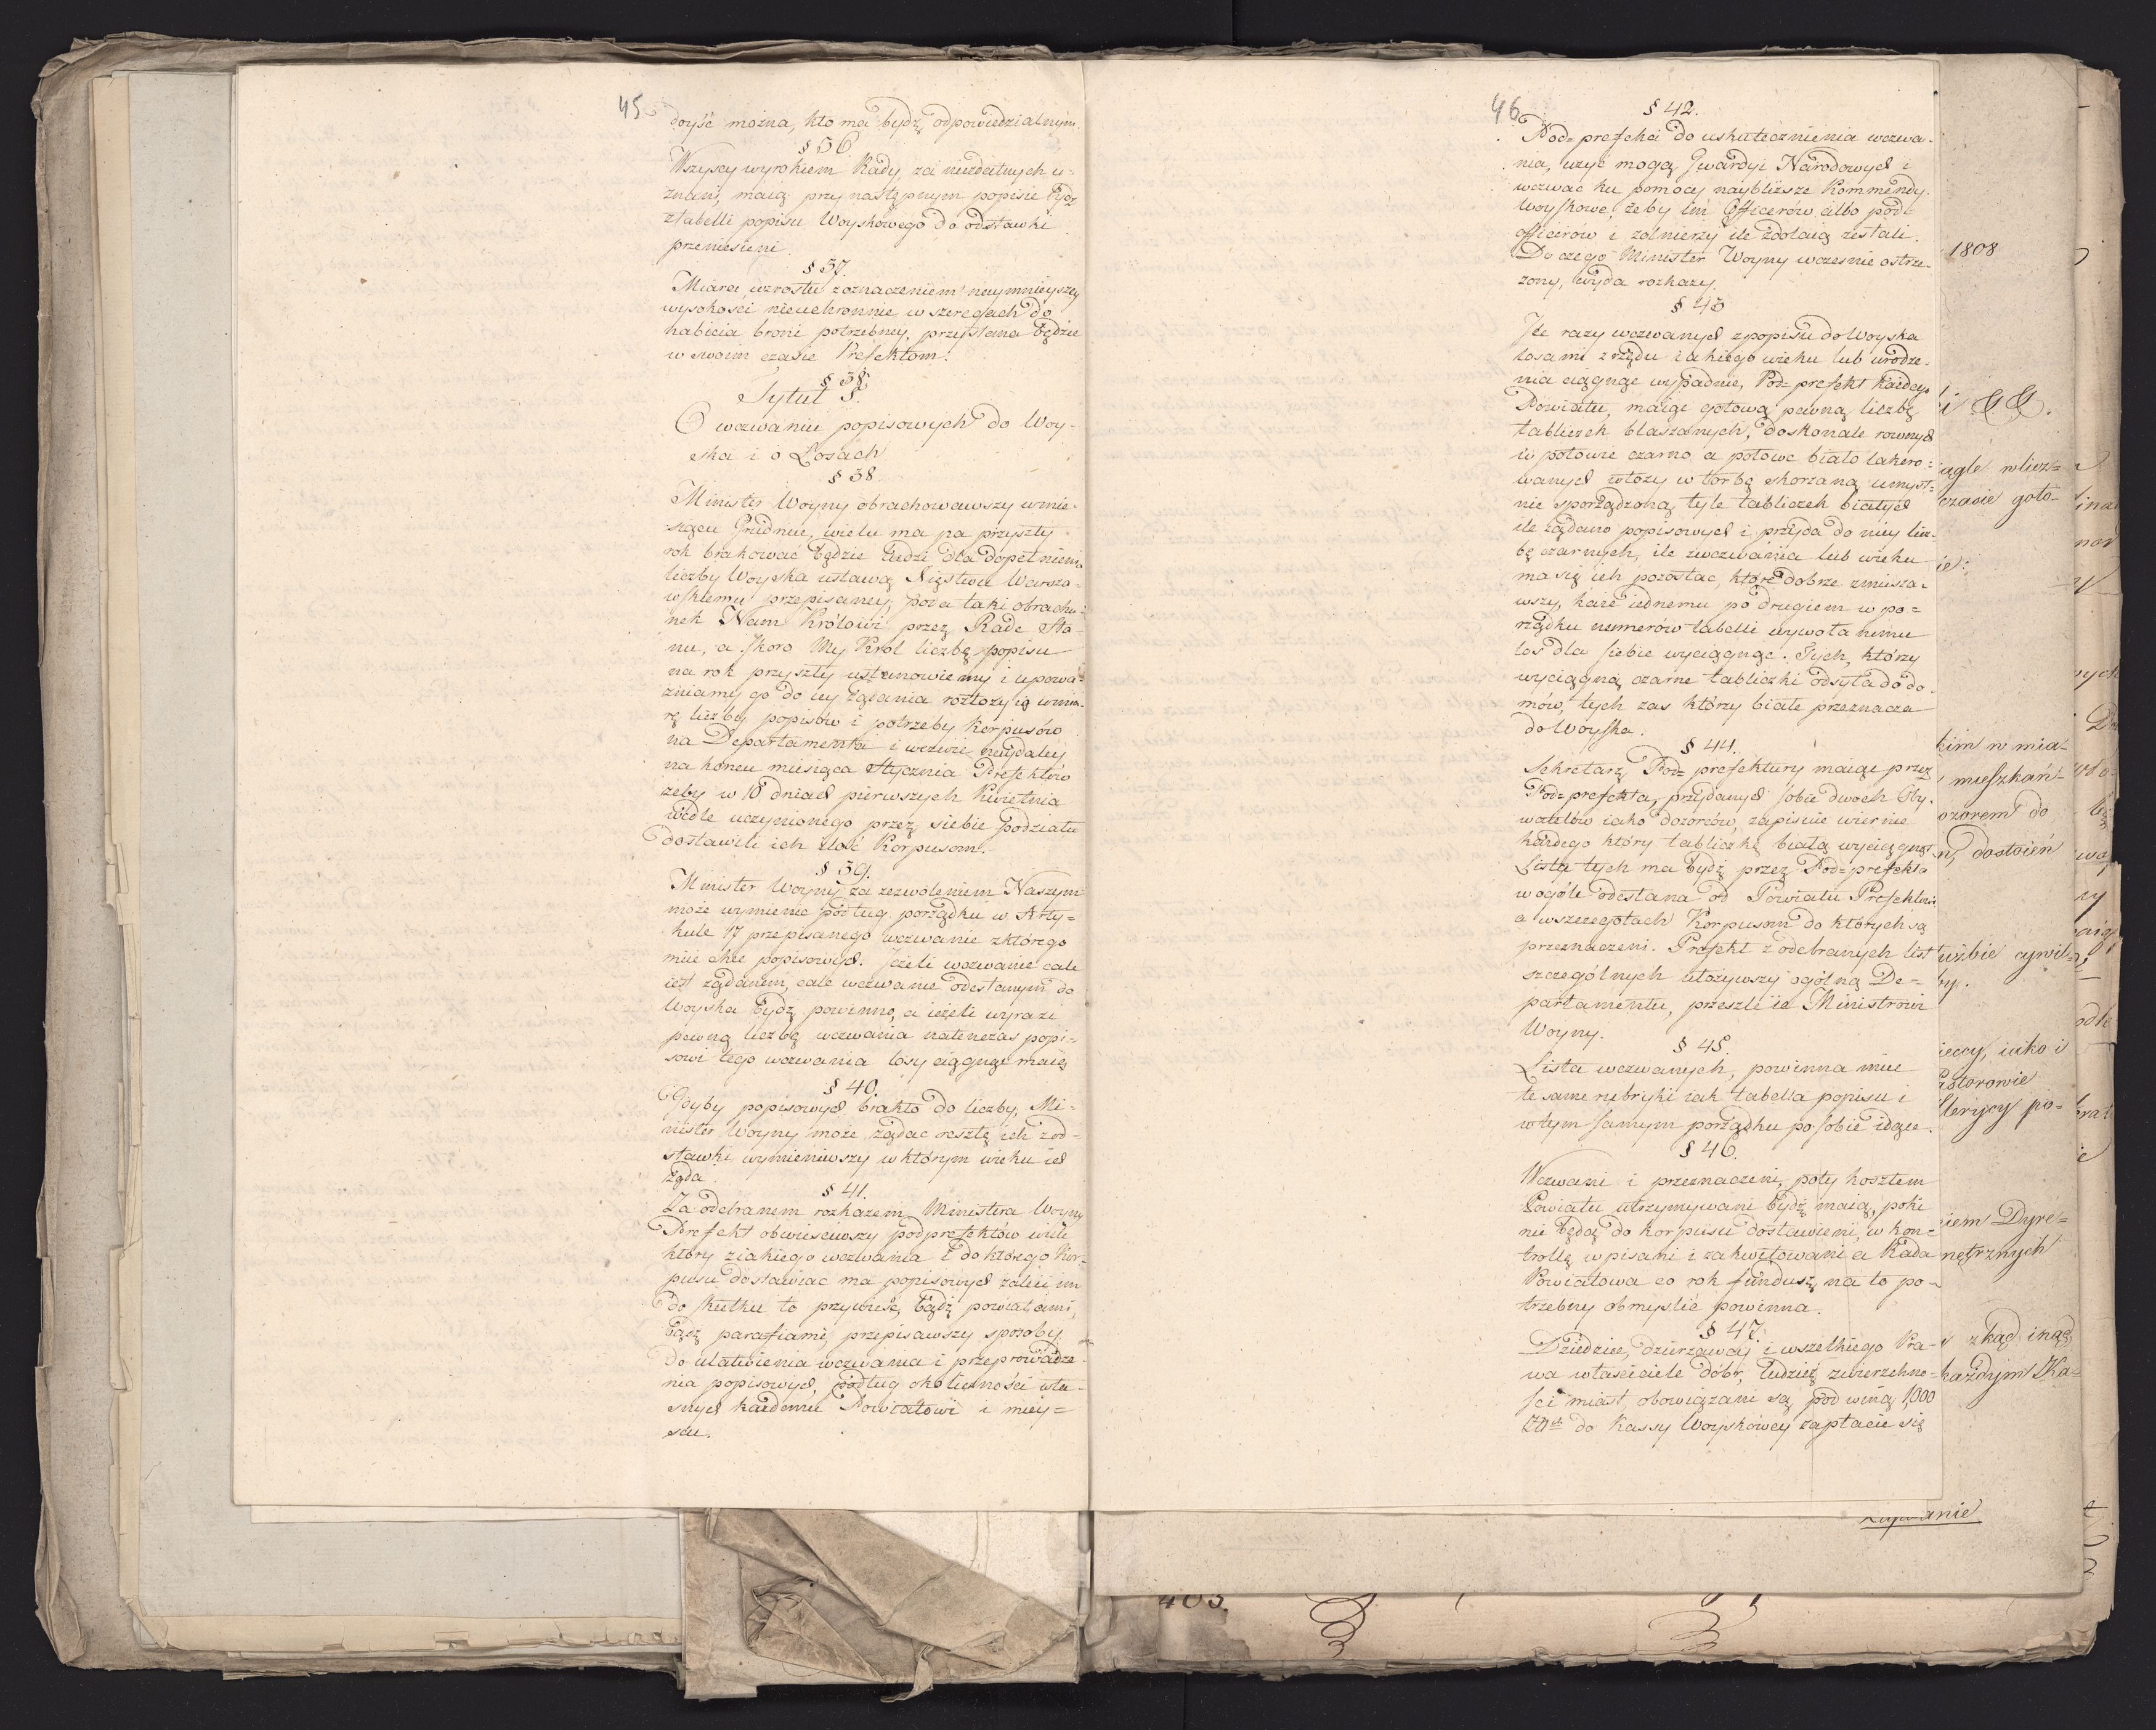 45
doyść można, kto ma bydź odpowiedzialnym.
§ 36
Wszyscy wyrokiem Rady, za niezdatnych u=
znani, maią przy następnym popisie bydź
z tabelli popisu Woyskowego do odstawki
przeniesieni.
§ 37.
Miara wzrostu z oznaczeniem naymnieyszey
wysokości nieuchronnie w szeregach do
nabicia broni potrzebney, przesłana będzie
w swoim czasie Prefektom.
§ 38.
Tytuł 5.
O wezwaniu popisowych do Woy-
ska i o Losach
§ 38.
Minister Woyny obrachowawszy w mie-
siącu Grudniu, wielu ma na przyszły
rok brakować będzie ludzi dla dopełnienia
liczby Woyska ustawą Xięstwu Warsza-
wskiemu przepisaney, poda taki obrachu=
nek Nam Królowi przez Radę Sta-
nu, a skoro My Król liczbę popisu
na rok przyszły ustanowiemy i upowa=
żniamy go do iey żądania rozłoży ią w mia-
rę liczby popisów i potrzeby korpusów
na Departamenta i wezwie naydaley
na końcu miesiąca Stycznia Prefektów
żeby w 10 dniach pierwszych Kwietnia
wedle uczynionego przez siebie podziału
dostawili ich ilość Korpusom.
§ 39.
Minister Woyny za zezwoleniem Naszym
może wymienić podług porządku w Arty=
kule 17 przepisanego wezwanie z którego
mieć chce popisowych. Jeżeli wezwanie całe
iest żądanem, całe wezwanie odesłanym do
Woyska bydź powinno, a ieżeli wyrazi
pewną liczbę wezwania natenczas popi-
sowi tego wezwania losy ciągnąć maią
§ 40.
Gdyby popisowych brakło do liczby, Mi-
nister Woyny może żądać resztę ich z od-
stawki wymieniwszy w którym wieku ich
żąda.
§ 41.
Za odebranem rozkazem Ministra Woyny
Prefekt obwieściwszy podprefektów wiele
który z iakiego wezwania i do którego Kor-
pusu dostawiać ma popisowych zaleci im
do skutku to przywieść, bądź powiatami,
bądź parafiami, przepisawszy sposoby
do ułatwienia wezwania i przeprowadze-
nia popisowych, podług okoliczności wła-
snych każdemu Powiatowi i miey=
scu.
46
§ 42.
Pod=prefekci do uskutecznienia wezwa-
nia, użyć mogą Gwardyi Narodowych i
wezwać ku pomocy naybliższe Kommendy
Woyskowe, żeby im Officerów albo pod-
officerów i żolnierzy ile zdołaią zesłali.
Do czego Minister Woyny wcześnie ostrze-
żony, wyda rozkazy.
§ 43
Ile razy wezwanych z popisu do Woyska
losami z rzędu iakiego wieku lub urodze-
nia ciągnąć wypadnie, Pod=prefekt każdego
Powiatu, maiąc gotową pewną liczbę
tabliczek blaszanych, doskonale rownych
w połowie czarno a połowę biało lakiero=
wanych włoży w torbę skorzaną umyśl=
nie sporządzoną tyle tabliczek białych
ile żądano popisowych i przyda do niey licz-
bę czarnych, ile z wezwania lub wieku
ma się ich pozostać, które dobrze zmiesza-
wszy, każe iednemu po drugiem w po=
rządku numerów tabelli wywołanemu
los dla siebie wyciągnąć. Tych, którzy
wyciągną czarne tabliczki odsyła do do-
mów, tych zas którzy białe przeznacza
do Woyska.
§ 44.
Sekretarz Pod=prefektury maiąc przez
Pod=prefekta, przydanych sobie dwoch Oby-
watelów iako dozorców, zapisuie wiernie
każdego który tabliczkę białą wyciągnął
Lista tych ma bydź przez Pod=prefekta
w ogóle odesłana od Powiatu Prefektowi
a w szczegółach Korpusom do których są
przeznaczeni. Prefekt z odebranych list
szczególnych ułożywszy ogólną De-
partamentu, przeszle ią Ministrowi
Woyny.
§ 45.
Lista wezwanych, powinna mieć
te same rubryki iak tabella popisu i
w tym samym porządku po sobie idące.
§ 46.
Wezwani i przeznaczeni, poty kosztem
Powiatu utrzymywani bydź maią, poki
nie będą do korpusu dostawieni, w kon-
trollę wpisani i zakwitowani a Rada
Powiatowa co rok fundusz na to po-
trzebny obmyślić powinna.
§ 47.
Dziedzice, dzierżawcy i wszelkiego Pra-
wa właściciele dóbr, tudzież zwierzchno-
ści miast, obowiązani są pod winą 1,000
Złt do Kassy Woyskowey zapłacić się
1808
i &&.
ągle w licz=
czasie goto-
kim w mia-
mieszkań-
ozorem do
dostoień
użbie cywil-
by.
ieccy, iako i
Pastorowie
Klerycy po-
iem Dyre=
nętrznych
zkąd inąd
każdym Ka-